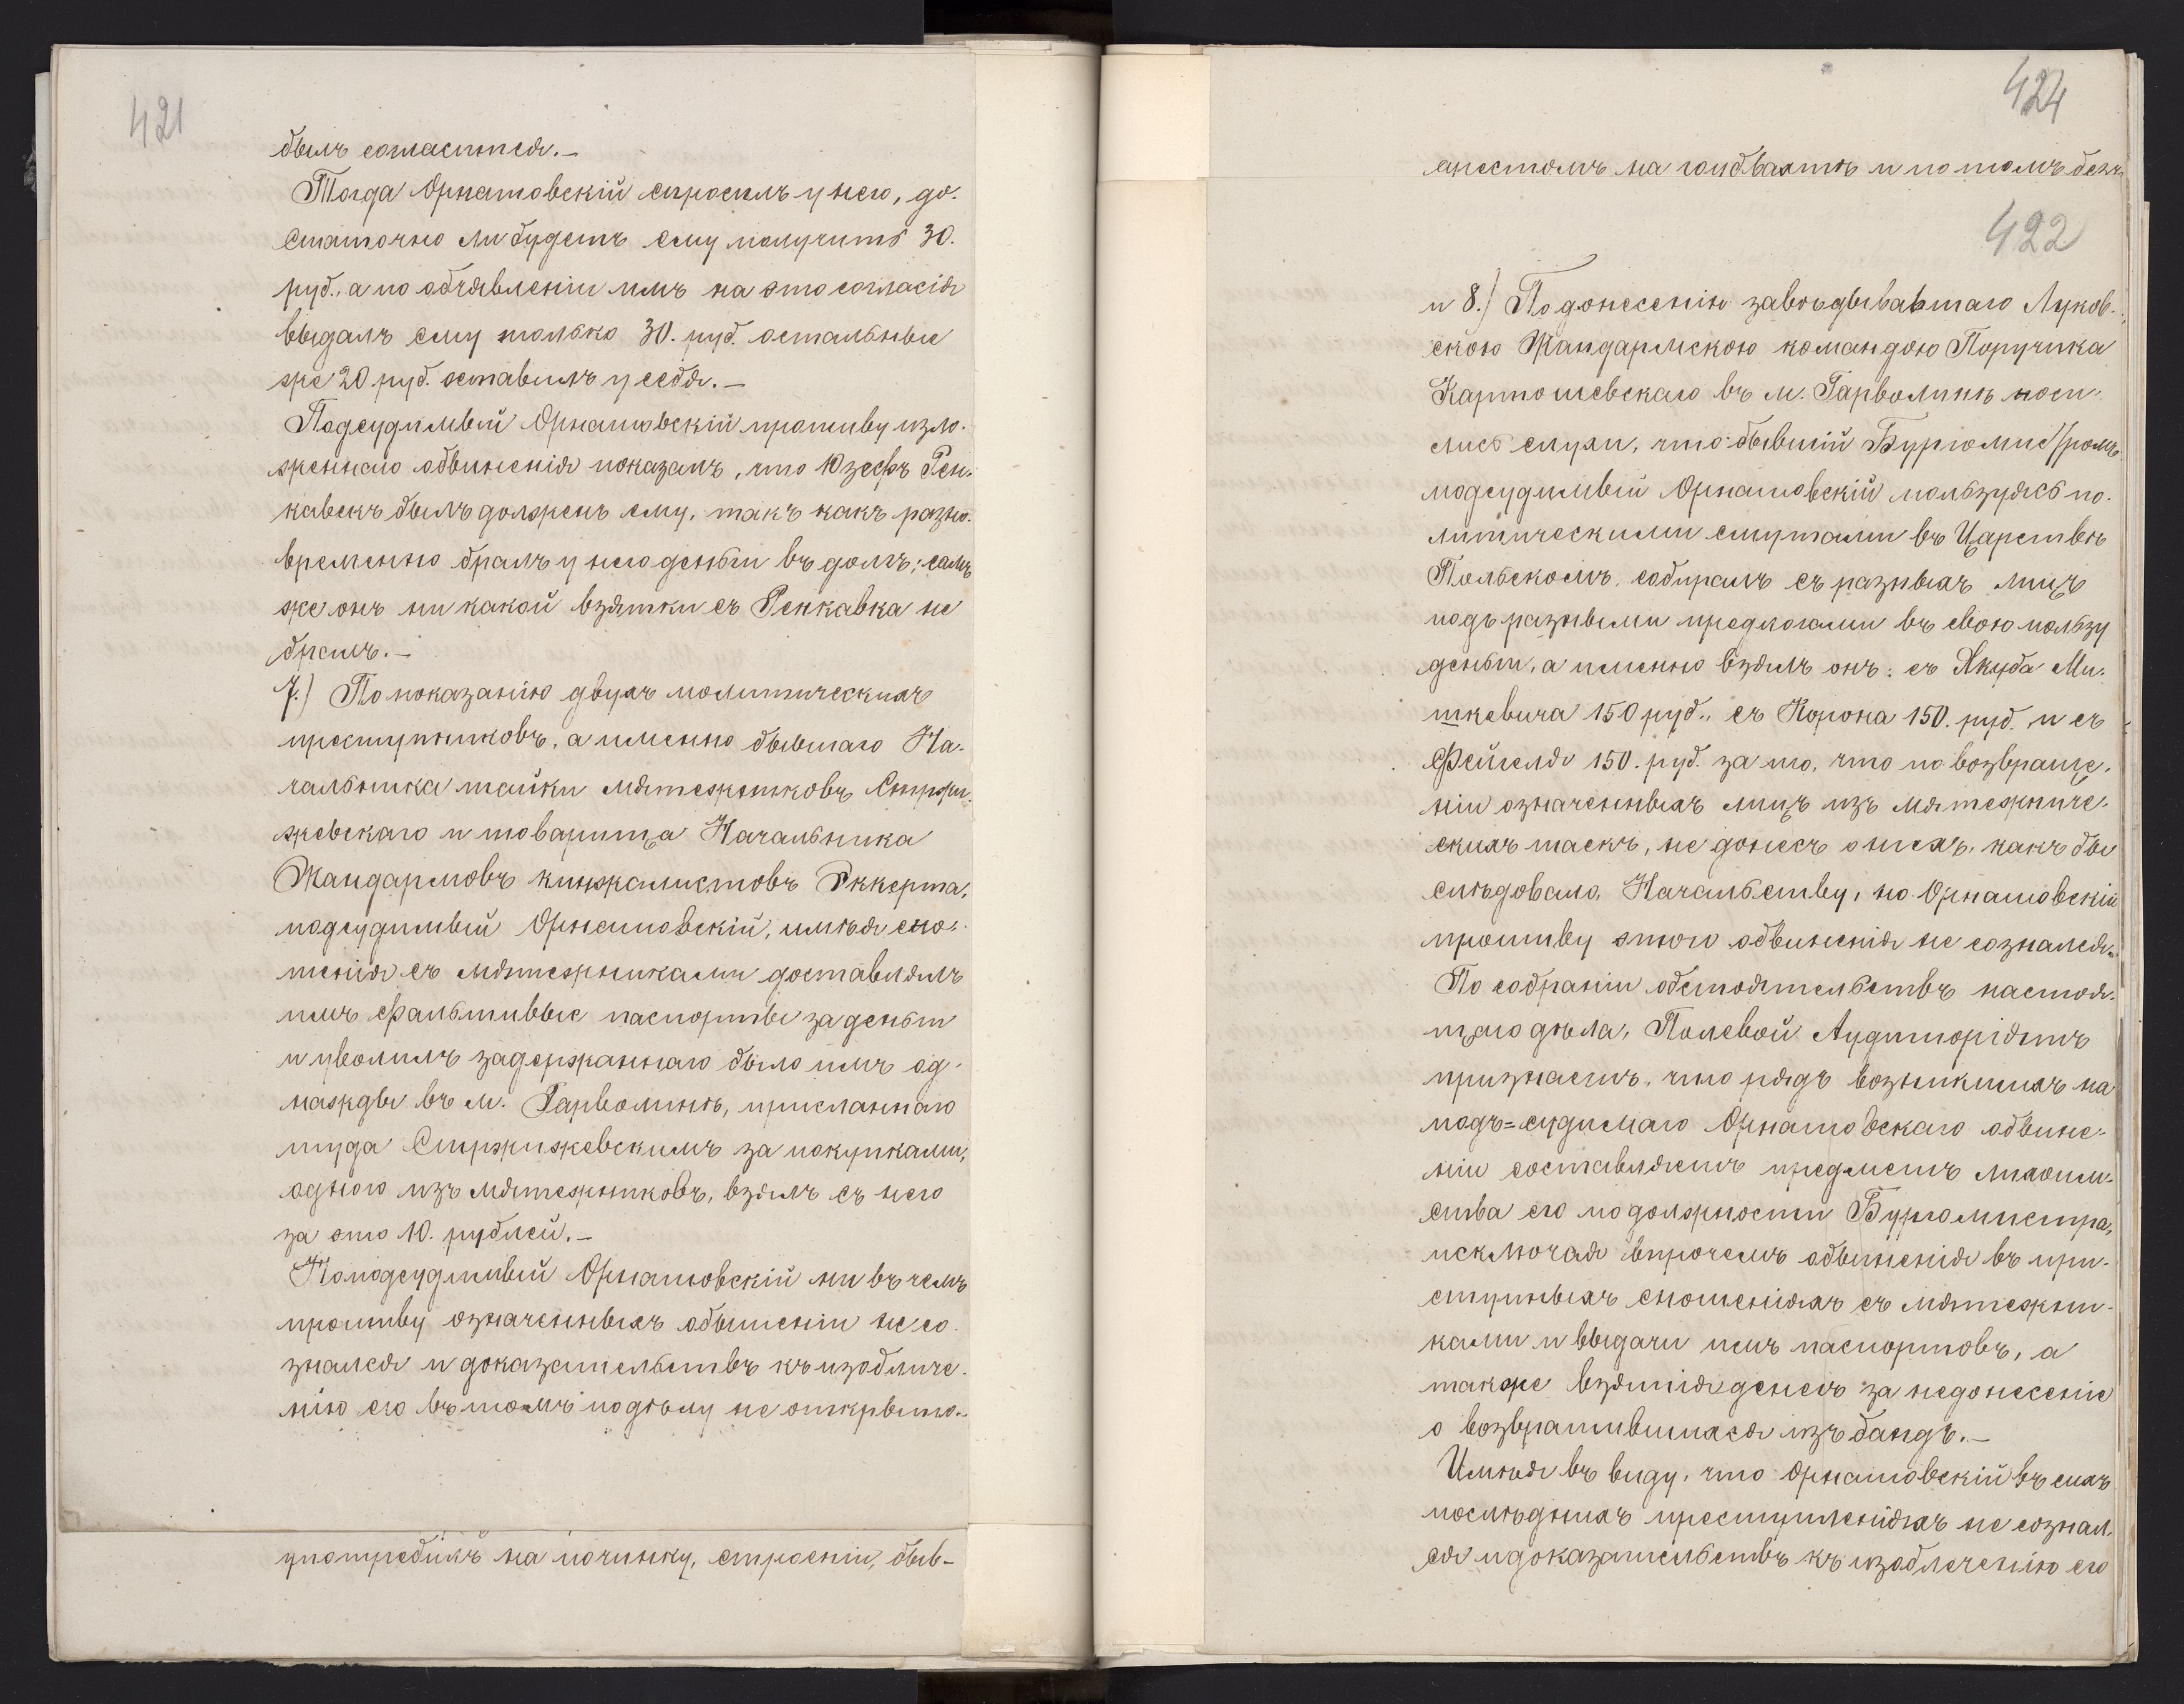 421
былъ согласится.—
Тогда Орнатовскій спросилъ у него, до-
статочно ли будетъ ему получить 30.
руб., а по объявленіи имъ на это согласія
выдалъ ему только 30. руб. остальные
же 20 руб. оставилъ у себя.—
Подсудимый Орнатовскій противу изло-
женнаго обвиненія показалъ, что Юзефъ Рен-
кавекъ былъ долженъ ему, такъ какъ разно-
временно бралъ у него деньги въ долгъ; самъ
же онъ ни какой взятки съ Ренкавка не
бралъ.—
7.) По показанію двухъ политическихъ
преступниковъ, а именно бывшаго На-
чальника шайки мятежниковъ Стржи-
жевскаго и товарища Начальника
Жандармовъ кинжалистовъ Эккерта,
подсудимый Орнатовскій, имѣя сно-
шенія съ мятежниками доставлялъ
имъ фальшивые паспорты за деньги
и уволилъ задержаннаго было имъ од-
нажды въ м. Гарволинѣ, присланнаго
туда Стржижевскимъ за покупками,
одного изъ мятежниковъ, взялъ съ него
за это 10. рублей.—
Но подсудимый Орнатовскій ни въ чемъ
противу означенныхъ обвиненіи не со-
знался и доказательствъ къ изобличе-
нію его въ томъ по дѣлу не открыто.
употребилъ на починку, строеніи, быв-
424
арестомъ на гоубвахтѣ и потомъ безъ
422
и 8.) По донесенію завѣдывавшаго Луков-
скою Жандармскою командою Поручика
Картошевскаго въ м. Гарволинѣноси-
лись слухи, что бывшій Бургомистромъ
подсудимый Орнатовскій пользуясь по-
литическими смутами въ Царствѣ
Польскомъ, собиралъ съ разныхъ лицъ
подъ разными предлогами въ свою пользу
деньги, а именно взялъ онъ: съ Якуба Ми-
шкевича 150 руб., съ Корона 150. руб. и съ
Фейгеля 150. руб. за то, что по возвраще-
ніи означенныхъ лицъ изъ мятежниче-
скихъ шаекъ, не донесъ о нихъ, какъ бы
слѣдовало, Начальству, но Орнатовскій
противу этого обвиненія не сознался.
По собраніи обстоятельствъ настоя-
щаго дѣла, Полевой Аудиторіятъ
признаетъ, что рядъ возникшихъ на
подъ=судимаго Орнатовскаго обвине-
ніи составляетъ предметъ лихоим-
ства его по должности Бургомистра,
исключая впрочемъ обвиненія въ пре-
ступныхъ сношеніяхъ съ мятежни-
ками и выдачи имъ паспортовъ, а
также взятія денегъ за недонесеніе
о возвратившихся изъ бандъ.—
Имѣя въ виду, что Орнатовскій въ сихъ
послѣднихъ преступленіяхъ не сознал-
ся и доказательствъ къ изобличенію его